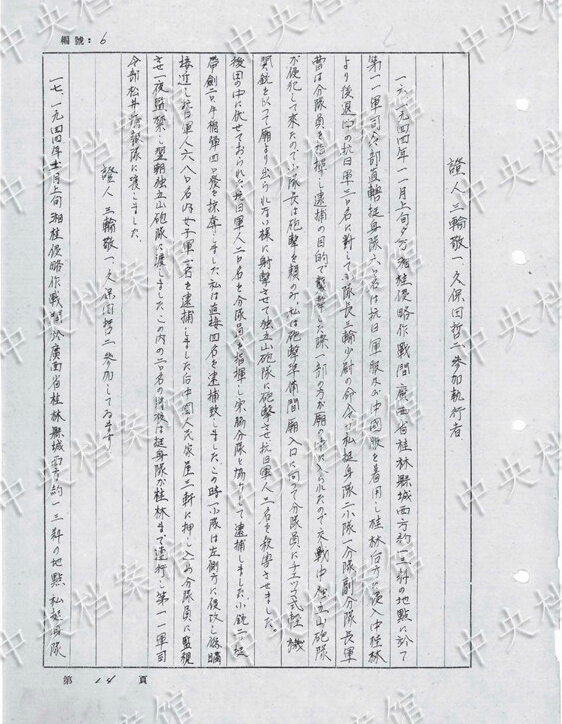 編號：6
證人 三輪敬一、久保田哲二 參加執行者
一六、一九四四年一一月上旬夕方 湘桂侵略作戰間 廣西省桂林縣城西方約一三粁の地點に於て
第一一軍司令部直轄挺身隊六〇名は抗日軍服及び中國服を着用し桂林白方に侵入中桂林
より後退中の抗日軍三〇名に對して小隊長三輪少尉の命令で私挺身隊二小隊一分隊副分隊長軍
曹は分隊員を指揮し逮捕の目的で襲撃した際一部の方が廟の中に入られたので交戰中獨立山砲隊
が侵犯して來たので小隊長は砲撃を賴のみ、私は砲撃準備間廟入口に向つて分隊員にチエツコ式輕機
関銃を以つて廟より出られない様に射撃させて獨立山砲隊に砲撃させ抗日軍人二名を殺害させました。
後田の中に伏せておられた抗日軍人二〇名を分隊員を指揮し他分隊と協力して逮捕しました 小銃二
帶劍二〇、手榴彈四〇發を抹奪しました 私は直接四名を逮捕致しました この時一小隊は左側方に侵攻し
接近した抗日軍人六八〇名内女子軍一名を逮捕しました 后中國人民家屋三軒に押し込め分隊員に監視
させ一夜監禁し翌朝獨立山砲隊に渡しました この内二〇名の將校は挺身隊が桂林まで連行し第一一軍司
令部松井諜報隊に渡しました。
證人 三輪敬一、久保田哲二 參加してゐます。
一七、一九四四年十一月上旬 湘桂侵略作戰間於廣西省桂林縣城西方約一三粁の地點 私挺身隊
第 14 頁
中央档案馆